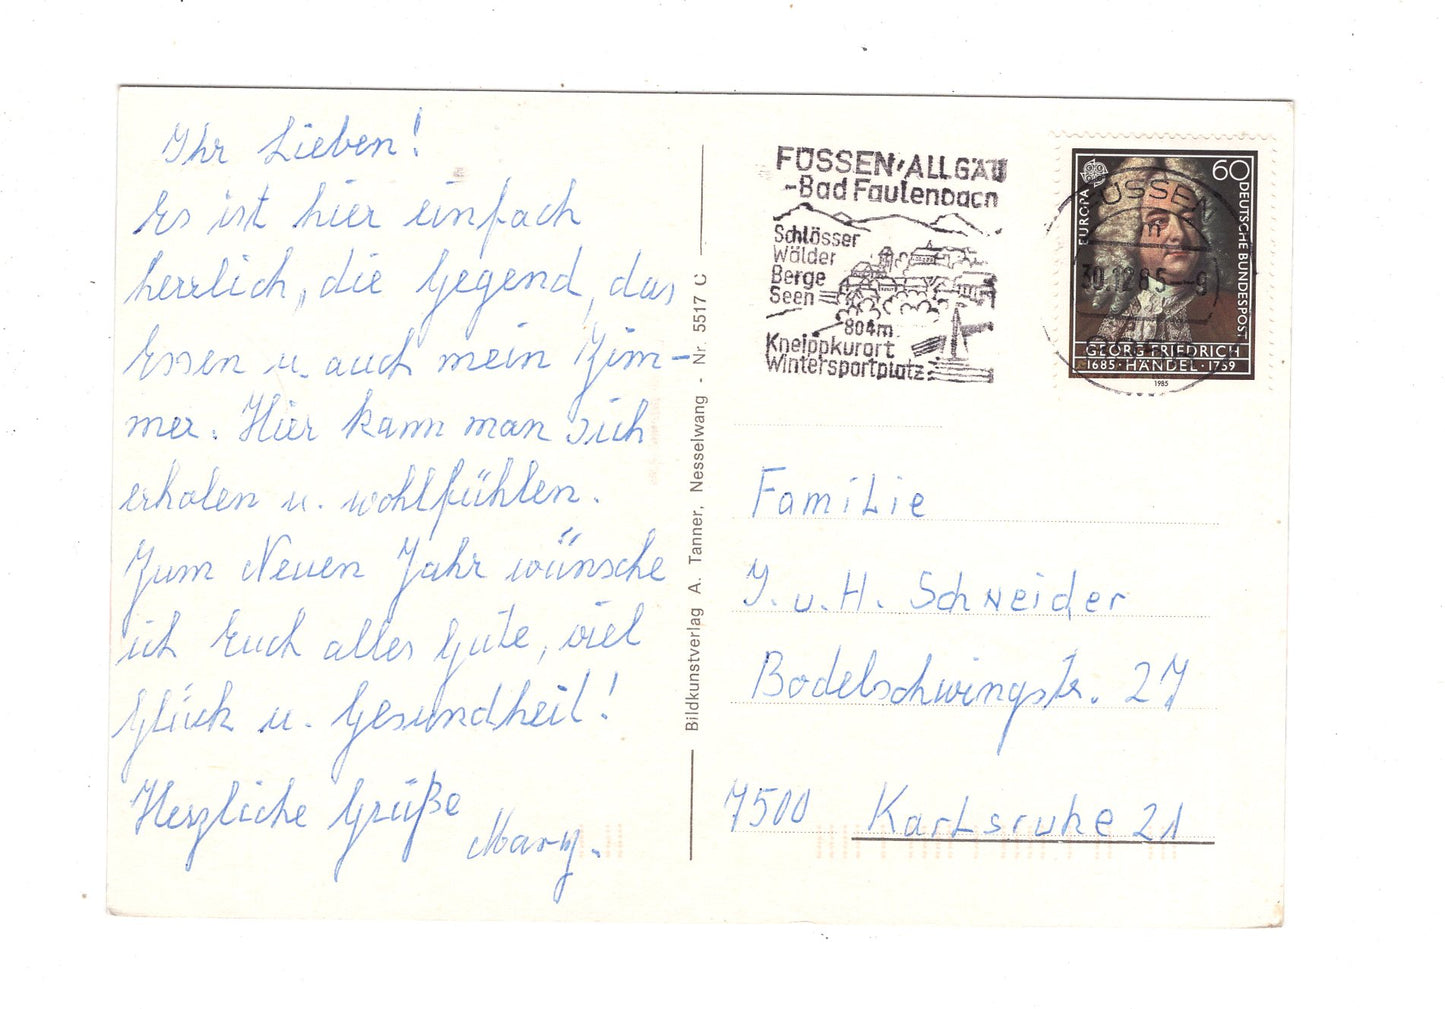 Ihr Lieben!
Es ist hier einfach
herrlich, die Gegend, das
Essen u. auch mein Zim-
mer. Hier kann man sich
erholen u. wohlfühlen.
Zum Neuen Jahr wünsche
ich Euch alles Gute, viel
Glück u. Gesundheit!
Herzliche Grüße
Mary.
Bildkunstverlag A. Tanner, Nesselwang - Nr. 5517 C
FÜSSEN/ALLGÄU
-Bad Faulenbach
Schlösser
Wälder
Berge
Seen
804m
Kneippkurort
Wintersportplatz
EUROPA
60
DEUTSCHE BUNDESPOST
GEORG FRIEDRICH
1685 · HÄNDEL · 1759
1985
FÜSSEN
30.12.85--9
Familie
J. u. H. Schneider
Bodelschwingstr. 27
7500 Karlsruhe 21